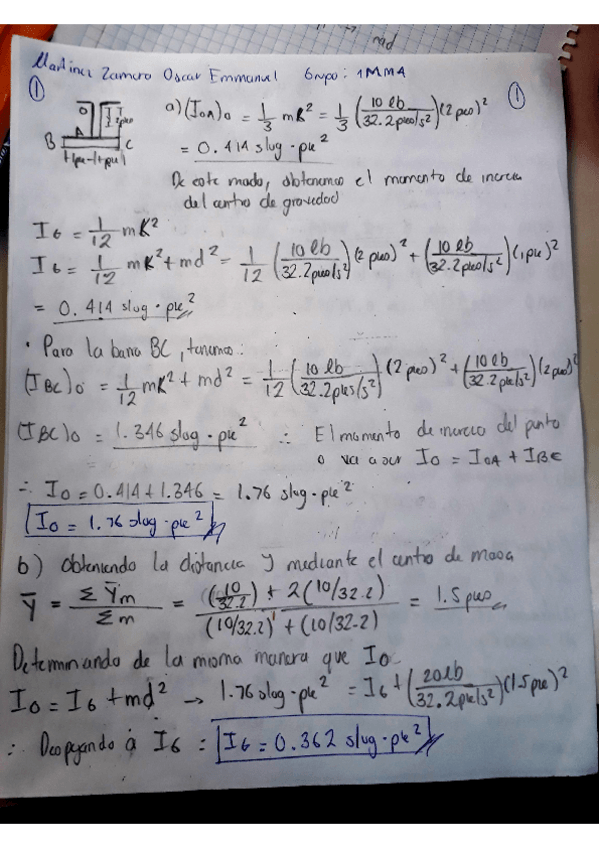 rad
Martinez Zamoro Oscar Emmanuel Grupo: 1MM4
① a) (IOA)o = 1/3 mK² = 1/3 (10 lb / 32.2 pies/s²)(2 pies)² ①
O
2 pies
B C
= 0.414 slug · pie²
De este modo, obtenemos el momento de inercia
del centro de gravedad
IG = 1/12 mK²
IG = 1/12 mK² + md² = 1/12 (10 lb / 32.2 pies/s²)(2 pies)² + (10 lb / 32.2 pies/s²)(1 pie)²
= 0.414 slug · pie²
• Para la barra BC, tenemos:
(IBC)o = 1/12 mK² + md² = 1/12 (10 lb / 32.2 pies/s²)(2 pies)² + (10 lb / 32.2 pie/s²)(2 pies)²
(IBC)o = 1.346 slug · pie² ∴ El momento de inercia del punto
o va a ser Io = IOA + IBC
∴ Io = 0.414 + 1.346 = 1.76 slug · pie²
Io = 1.76 slug · pie²
b) Obteniendo la distancia Y mediante el centro de masa
Ȳ = Σ Ȳm / Σm = ((10/32.2) + 2(10/32.2)) / ((10/32.2) + (10/32.2)) = 1.5 pies
Determinando de la misma manera que Io
Io = IG + md² → 1.76 slug · pie² = IG + (20 lb / 32.2 pie/s²)(1.5 pie)²
∴ Despejando a IG : IG = 0.362 slug · pie²